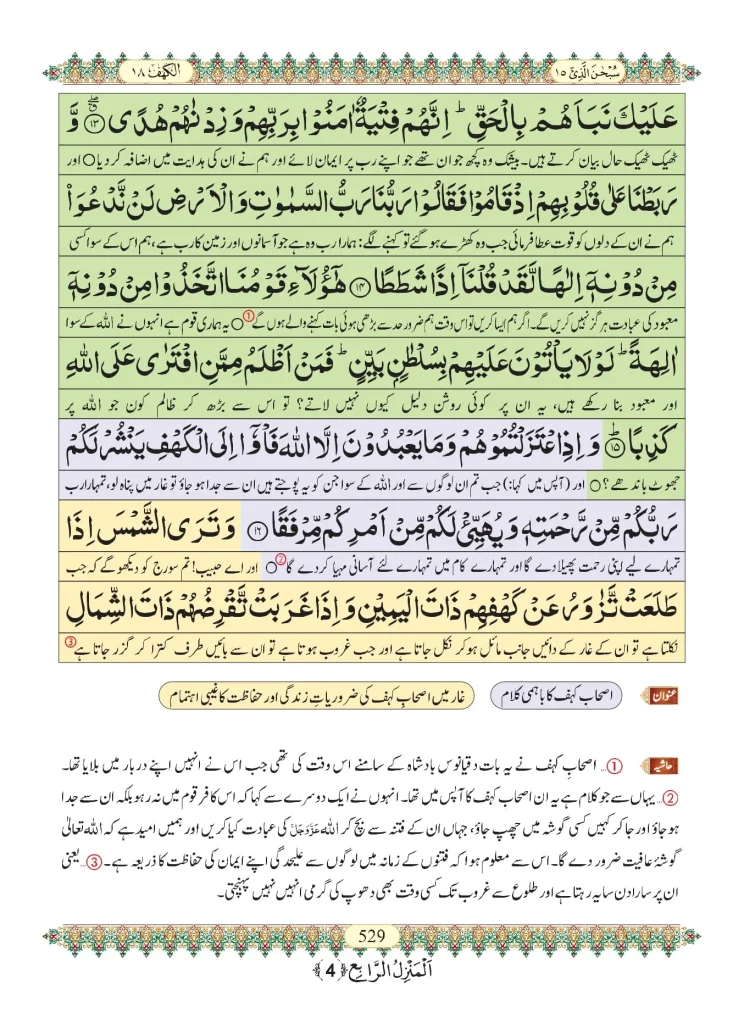 سُبْحٰنَ الَّذِیْۤ ١٥
اَلْكَهْف ١٨
عَلَیْكَ نَبَاَهُمْ بِالْحَقِّ ؕ اِنَّهُمْ فِتْیَةٌ اٰمَنُوْا بِرَبِّهِمْ وَ زِدْنٰهُمْ هُدًىۗۖ ۱۳ وَّ
ٹھیک ٹھیک حال بیان کرتے ہیں۔ بیشک وہ کچھ جوان تھے جو اپنے رب پر ایمان لائے اور ہم نے ان کی ہدایت میں اضافہ کردیا ○ اور
رَبَطْنَا عَلٰى قُلُوْبِهِمْ اِذْ قَامُوْا فَقَالُوْا رَبُّنَا رَبُّ السَّمٰوٰتِ وَ الْاَرْضِ لَنْ نَّدْعُوَاۡ
ہم نے ان کے دلوں کو قوت عطا فرمائی جب وہ کھڑے ہوگئے تو کہنے لگے: ہمارا رب وہ ہے جو آسمانوں اور زمین کا رب ہے، ہم اس کے سوا کسی
مِنْ دُوْنِهٖۤ اِلٰهًا لَّقَدْ قُلْنَاۤ اِذًا شَطَطًا ۱۴ هٰۤؤُلَآءِ قَوْمُنَا اتَّخَذُوْا مِنْ دُوْنِهٖۤ
معبود کی عبادت ہرگز نہیں کریں گے۔ اگر ہم ایسا کریں تو اس وقت ہم ضرور حد سے بڑھی ہوئی بات کہنے والے ہوں گے ① ○ یہ ہماری قوم ہے انہوں نے اللہ کے سوا
اٰلِهَةً ؕ لَوْ لَا یَاْتُوْنَ عَلَیْهِمْ بِسُلْطٰنٍۭ بَیِّنٍ ؕ فَمَنْ اَظْلَمُ مِمَّنِ افْتَرٰى عَلَى اللّٰهِ
اور معبود بنا رکھے ہیں، یہ ان پر کوئی روشن دلیل کیوں نہیں لاتے؟ تو اس سے بڑھ کر ظالم کون جو اللہ پر
كَذِبًاؕ ۱۵ وَ اِذِ اعْتَزَلْتُمُوْهُمْ وَ مَا یَعْبُدُوْنَ اِلَّا اللّٰهَ فَاْوٗۤا اِلَى الْكَهْفِ یَنْشُرْ لَكُمْ
جھوٹ باندھے؟ ○ اور (آپس میں کہا:) جب تم ان لوگوں سے اور اللہ کے سوا جن کو یہ پوجتے ہیں ان سے جدا ہو جاؤ تو غار میں پناہ لو، تمہارا رب
رَبُّكُمْ مِّنْ رَّحْمَتِهٖ وَ یُهَیِّئْ لَكُمْ مِّنْ اَمْرِكُمْ مِّرْفَقًا ۱۶ وَ تَرَى الشَّمْسَ اِذَا
تمہارے لیے اپنی رحمت پھیلا دے گا اور تمہارے کام میں تمہارے لئے آسانی مہیا کردے گا ② ○ اور اے حبیب! تم سورج کو دیکھو گے کہ جب
طَلَعَتْ تَّزٰوَرُ عَنْ كَهْفِهِمْ ذَاتَ الْیَمِیْنِ وَ اِذَا غَرَبَتْ تَّقْرِضُهُمْ ذَاتَ الشِّمَالِ
نکلتا ہے تو ان کے غار کے دائیں جانب مائل ہو کر نکل جاتا ہے اور جب غروب ہوتا ہے تو ان سے بائیں طرف کترا کر گزر جاتا ہے ③
عنوان اصحاب کہف کا باہمی کلام غار میں اصحابِ کہف کی ضروریاتِ زندگی اور حفاظت کا غیبی اہتمام
حاشیہ ①... اصحابِ کہف نے یہ بات دقیانوس بادشاہ کے سامنے اس وقت کی تھی جب اس نے انہیں اپنے دربار میں بلایا تھا۔
②... یہاں سے جو کلام ہے یہ ان اصحابِ کہف کا آپس میں تھا۔ انہوں نے ایک دوسرے سے کہا کہ اس کافر قوم میں نہ رہو بلکہ ان سے جدا
ہو جاؤ اور جاکر کہیں کسی گوشہ میں چھپ جاؤ، جہاں ان کے فتنہ سے بچ کر اللہ عَزَّوَجَلَّ کی عبادت کیا کریں اور ہمیں امید ہے کہ اللہ تعالیٰ
گوشۂ عافیت ضرور دے گا۔ اس سے معلوم ہوا کہ فتنوں کے زمانہ میں لوگوں سے علیحدگی اپنے ایمان کی حفاظت کا ذریعہ ہے۔ ③... یعنی
ان پر سارا دن سایہ رہتا ہے اور طلوع سے غروب تک کسی وقت بھی دھوپ کی گرمی انہیں نہیں پہنچتی۔
529
اَلْمَنْزِلُ الرَّابِع ﴿4﴾